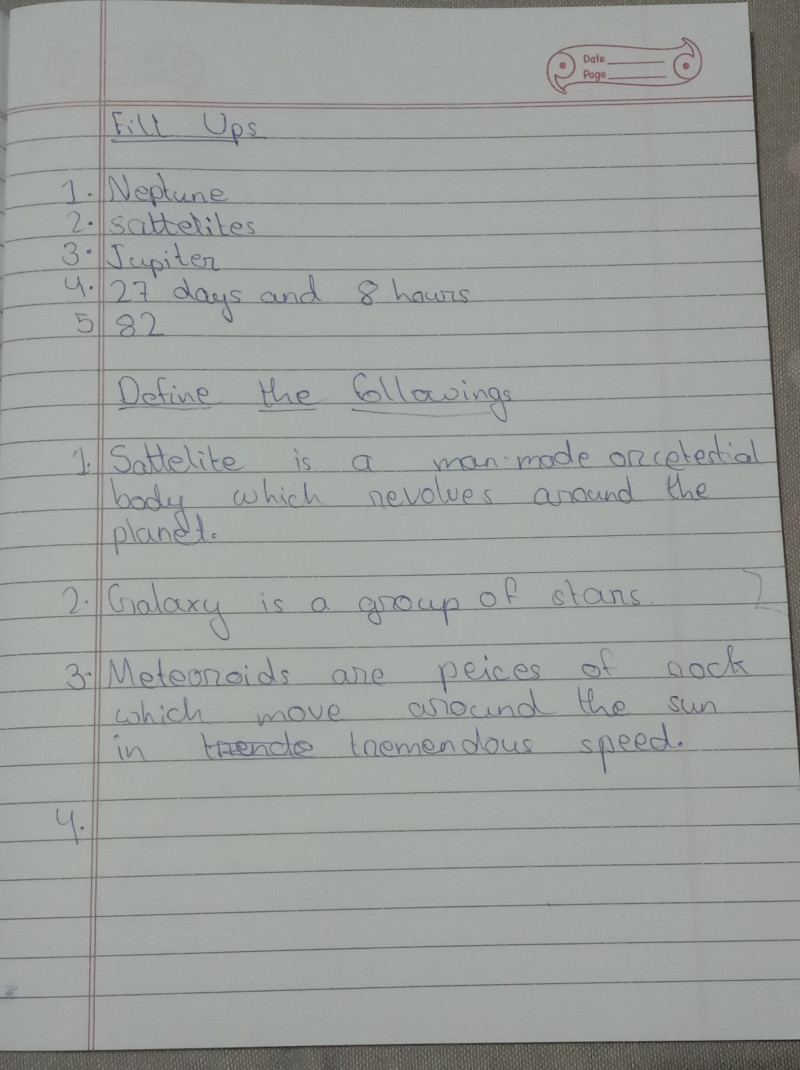 Date
Page
Fill Ups
1. Neptune
2. Sattelites
3. Jupiter
4. 27 days and 8 hours
5 82
Define the followings
1. Sattelite is a man-made or celestial
body which revolves around the
planet.
2. Galaxy is a group of stars.
3. Meteoroids are peices of rock
which move around the sun
in tremendous speed.
4.